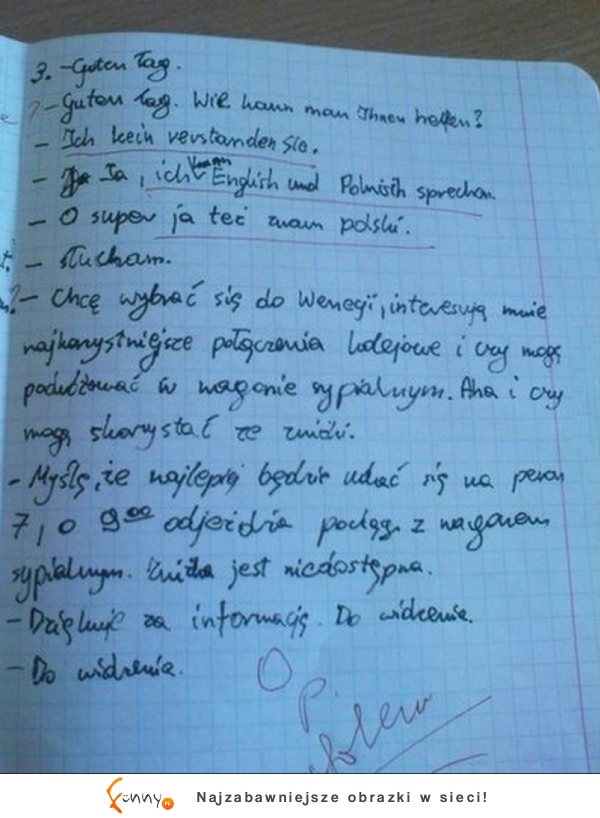 3. - Guten Tag.
? - Guten Tag. Wie kann man Ihnen helfen?
- Ich kein verstanden Sie.
- Ja, ich kann English und Polnisch sprechen.
- O super ja też znam polski.
- Słucham.
- Chcę wybrać się do Wenegi, interesują mnie
najkorzystniejsze połączenia kolejowe i czy mogę
podróżować w wagonie sypialnym. Aha i czy
mogę skorzystać ze zniżki.
- Myślę, że najlepiej będzie udać się na peron
7, o 9⁰⁰ odjeżdża pociąg z wagonem
sypialnym. Zniżka jest niedostępna.
- Dziękuję za informację. Do widzenia.
- Do widzenia.
O
P.
funny.pl
Najzabawniejsze obrazki w sieci!